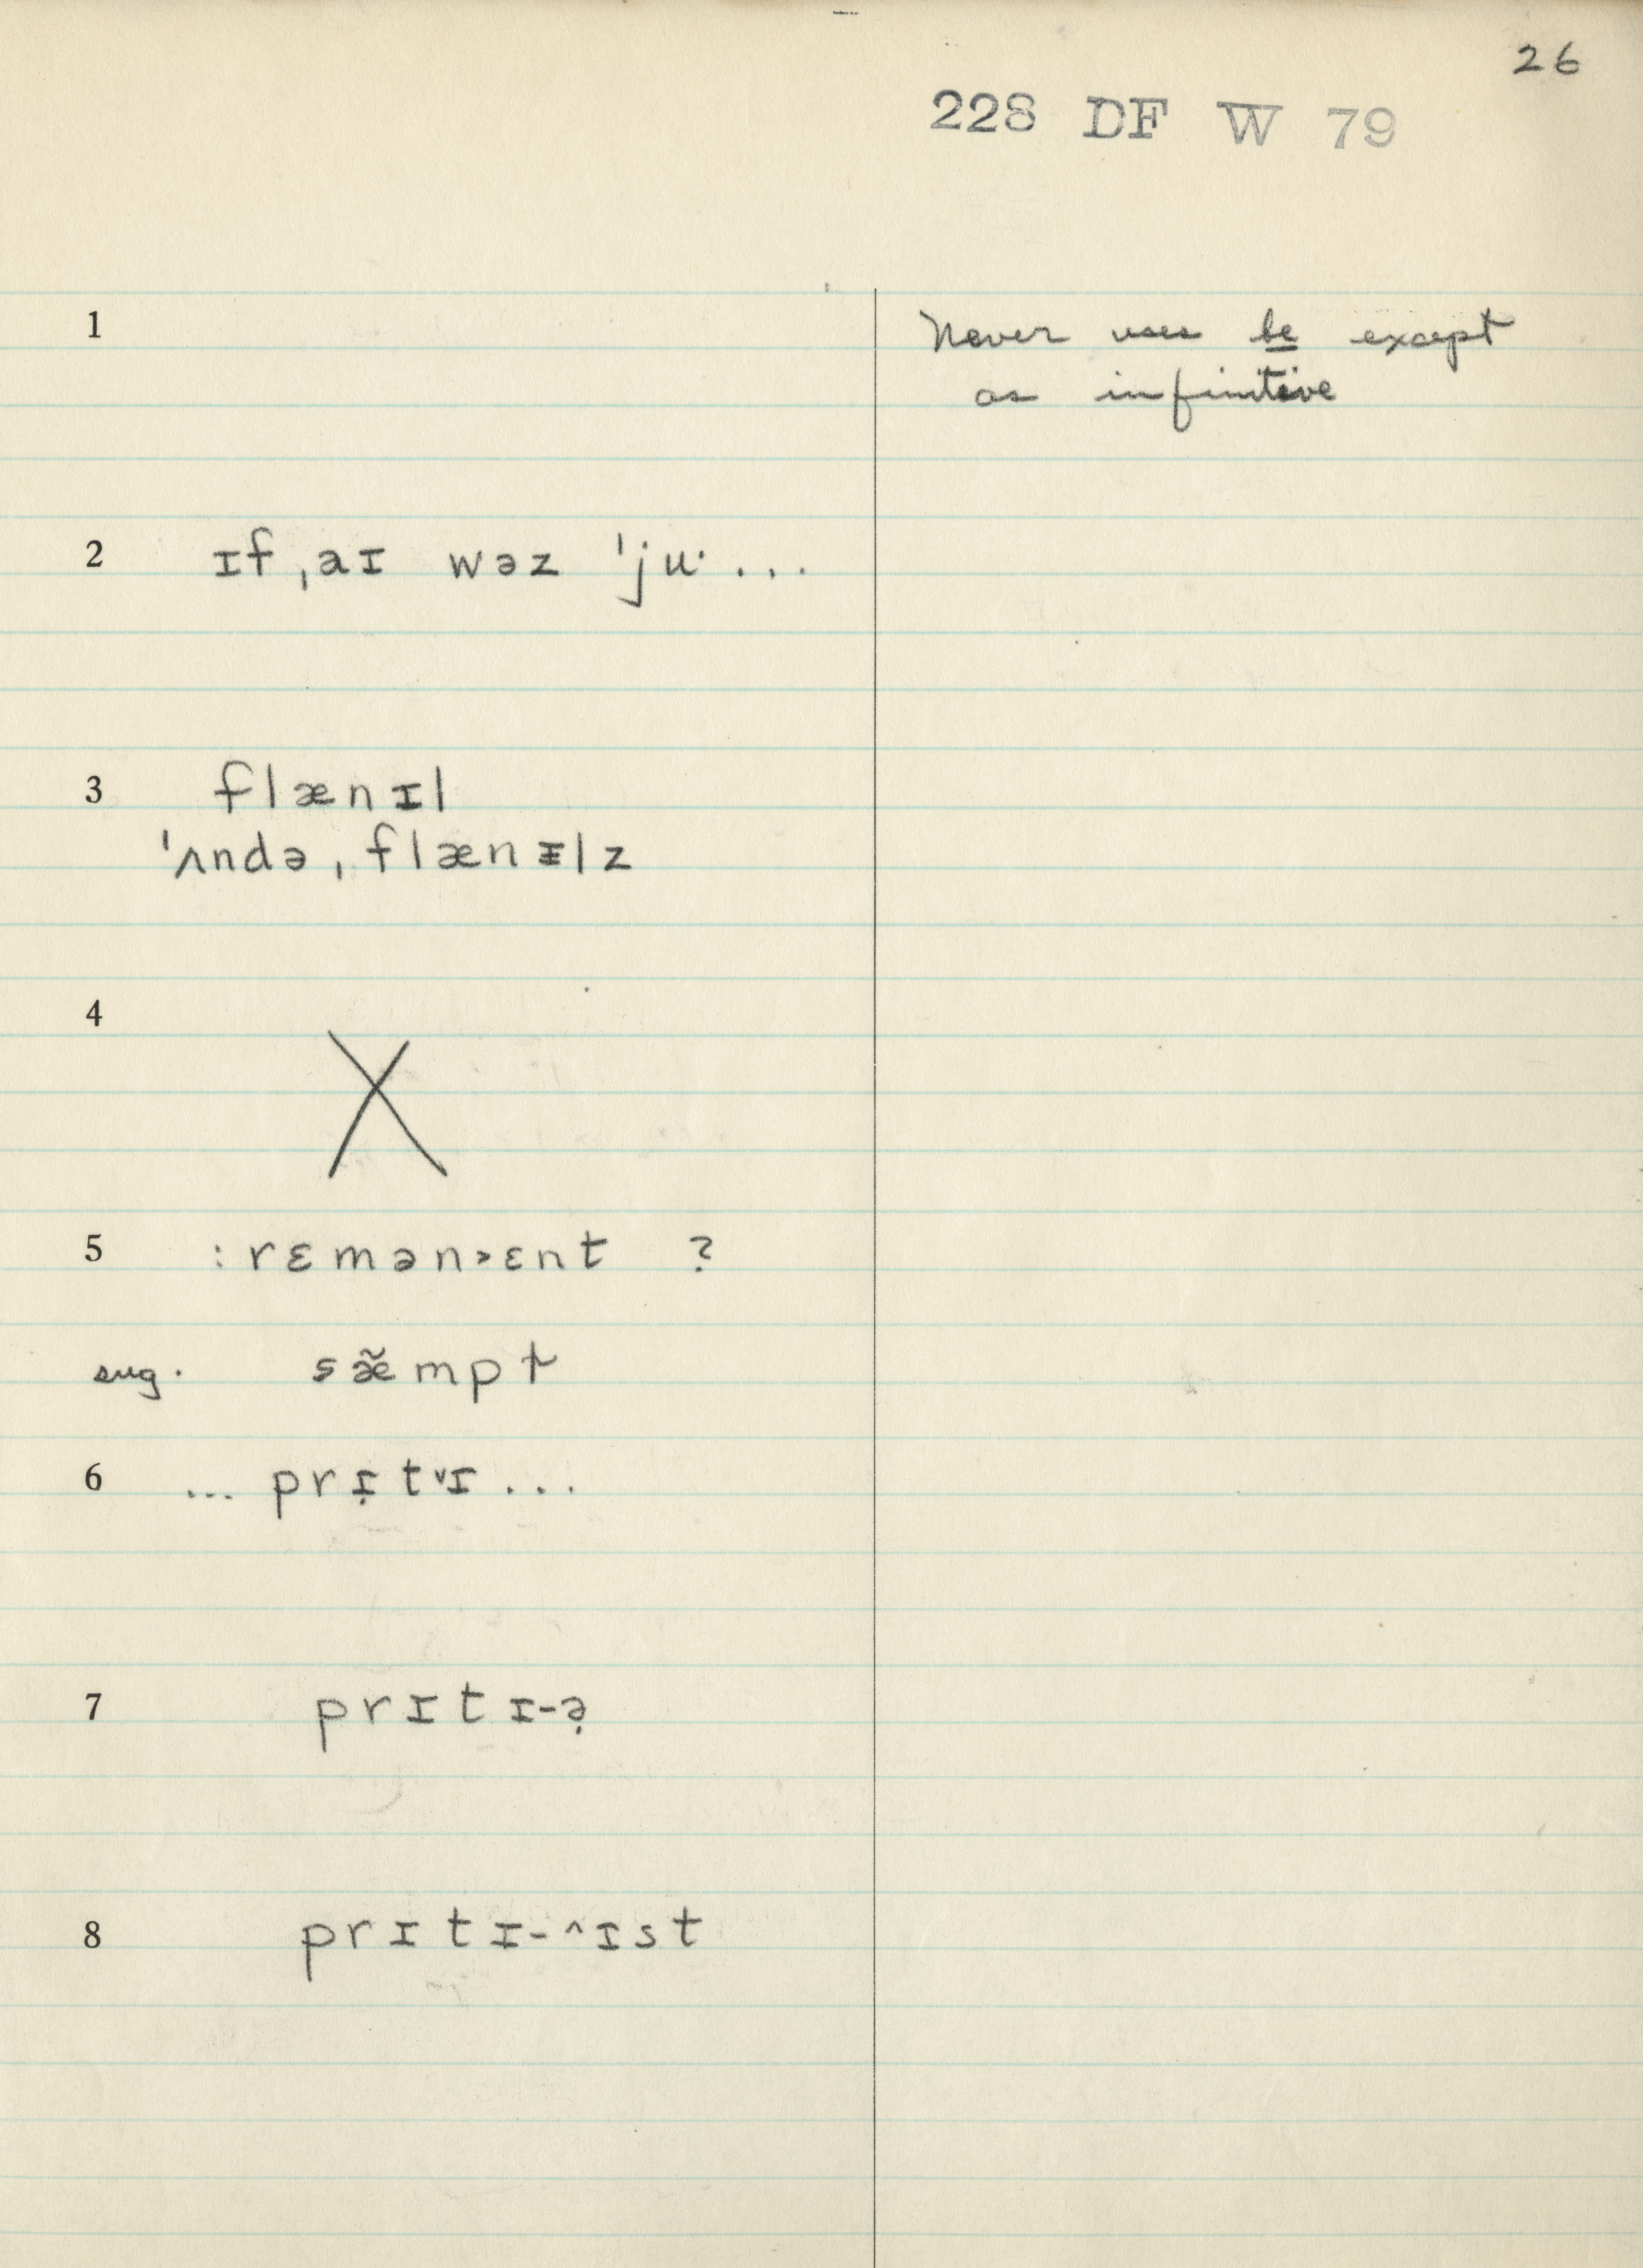 26
228 DF W 79
1 Never uses be except
as infinitive
2 ɪf ˌaɪ wəz ˈjuˑ...
3 flænɪl
ˈʌndə ˌflænᵻlz
4 X
5 :rɛmən˃ɛnt ?
sug. sæ̃mpt
6 ... prɪ̣t˅ɪ ...
7 prɪtɪ-ə̣
8 prɪtɪ-^ɪst